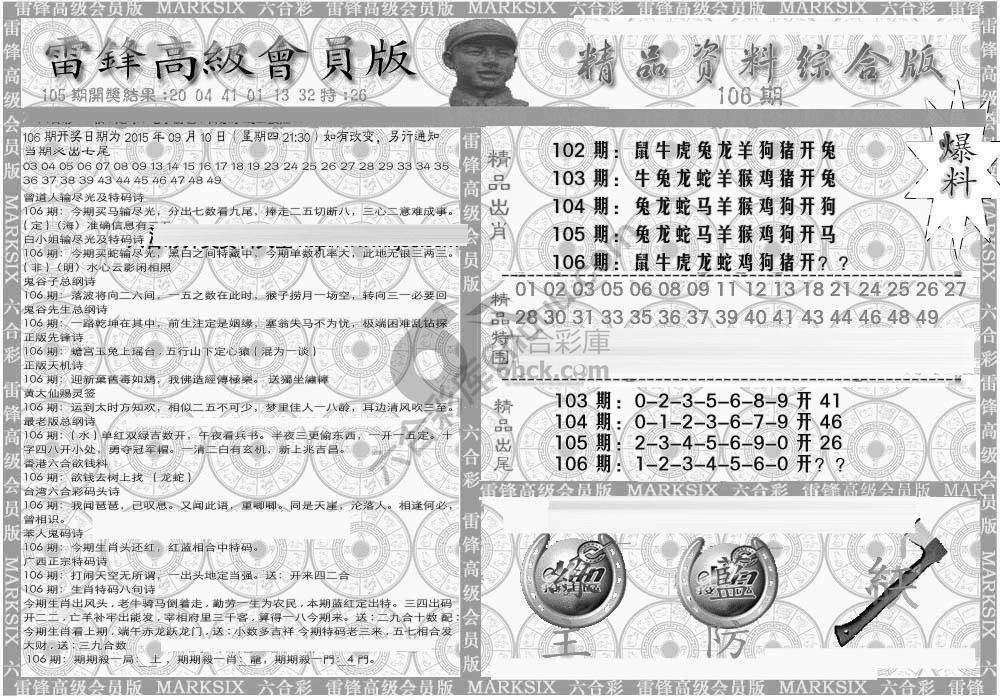 雷锋高级会员版 MARKSIX 六合彩 雷锋高级会员版 MARKSIX 六合彩 雷锋高级会员版 MARKSIX 六合彩 雷锋
雷鋒高級會員版
105期開獎結果:20 04 41 01 13 32特:26
精品资料综合版
106期
爆料
106 期开奖日期为 2015 年 09 月 10 日（星期四 21:30）如有改变，另行通知
当期必出七尾
03 04 05 06 07 08 09 13 14 15 16 17 18 19 23 24 25 26 27 28 29 33 34 35
36 37 38 39 43 44 45 46 47 48 49
曾道人输尽光及特码诗
106 期：今期买马输尽光，分出七数看九尾，捧走二五切断八，三心二意难成事。
{定}（海）准确信息有三
白小姐输尽光及特码诗
106 期：今期买蛇输尽光，黑白之间特藏中，今期单数机率大，此地无银三两三。
{非}（明）水心云影闲相照
鬼谷子总纲诗
106 期：落波将向二六间，一五之数在此时，猴子捞月一场空，转向三一必要回
鬼谷先生总纲诗
106 期：一路乾坤在其中，前生注定是姻缘，塞翁失马不为忧，极端困难乱钻探
正版先锋诗
106 期：蟾宫玉兔上瑶台，五行山下定心猿{混为一谈}
正版天机诗
106 期：迎新棄舊毒如鴆，我佛造經傳極樂。送獨坐嘯樟
黄大仙赐灵签
106 期：运到太时方知欢，相似二五不可少，梦里佳人一八龄，耳边清风吹三至。
最老版总纲诗
106 期：{水}单红双绿吉数开，午夜看兵书。半夜三更偷东西，一开一五定。十
字四八开小处，勇夺冠军帽。一清二白有玄机，新上兆吉昌。
香港六合欲钱料
106 期：欲钱去树上找 {龙蛇}
台湾六合彩码头诗
106 期：我闻琶琶，已叹息。又闻此语，重唧唧。同是天崖，沦落人。相逢何必，
曾相识。
本人鬼码诗
106 期：今期生肖头还红，红蓝相合中特码。
广西正宗特码诗
106 期：打间天空无所谓，一出头地定当强。送：开来四二合
106 期：生肖特码八句诗
今期生肖出风头，老牛骑马倒着走，勤劳一生为农民，本期蓝红定出特。三四出码
开二二，亡羊补牢出能发，宰相府里三千客，算得一八今期来。送：二九合十数 配：
今期生肖看上期，端午赤龙跃龙门，送：小数多吉祥 今期特码老三来，五七相合发
大财，送：三九合数
106 期：期期殺一局：土，期期殺一肖：龍，期期殺一門：4 門。
精品出肖
102 期：鼠牛虎兔龙羊狗猪开兔
103 期：牛兔龙蛇羊猴鸡猪开兔
104 期：兔龙蛇马羊猴鸡狗开狗
105 期：兔龙蛇马羊猴鸡狗开马
106 期：鼠牛虎龙蛇鸡狗猪开？？
精品特围
01 02 03 05 06 08 09 11 12 13 18 21 24 25 26 27
28 30 31 33 35 36 37 39 40 41 43 44 46 48 49
精品出尾
103 期：0-2-3-5-6-8-9 开 41
104 期：0-1-2-3-6-7-9 开 46
105 期：2-3-4-5-6-9-0 开 26
106 期：1-2-3-4-5-6-0 开？？
雷锋高级会员版 MARKSIX 六合彩 雷锋高级会员版 MARKSIX
王 防
六合彩庫
雷锋高级会员版 MARKSIX 六合彩 雷锋高级会员版 MARKSIX 六合彩 雷锋高级会员版 MARKSIX 六合彩 雷锋